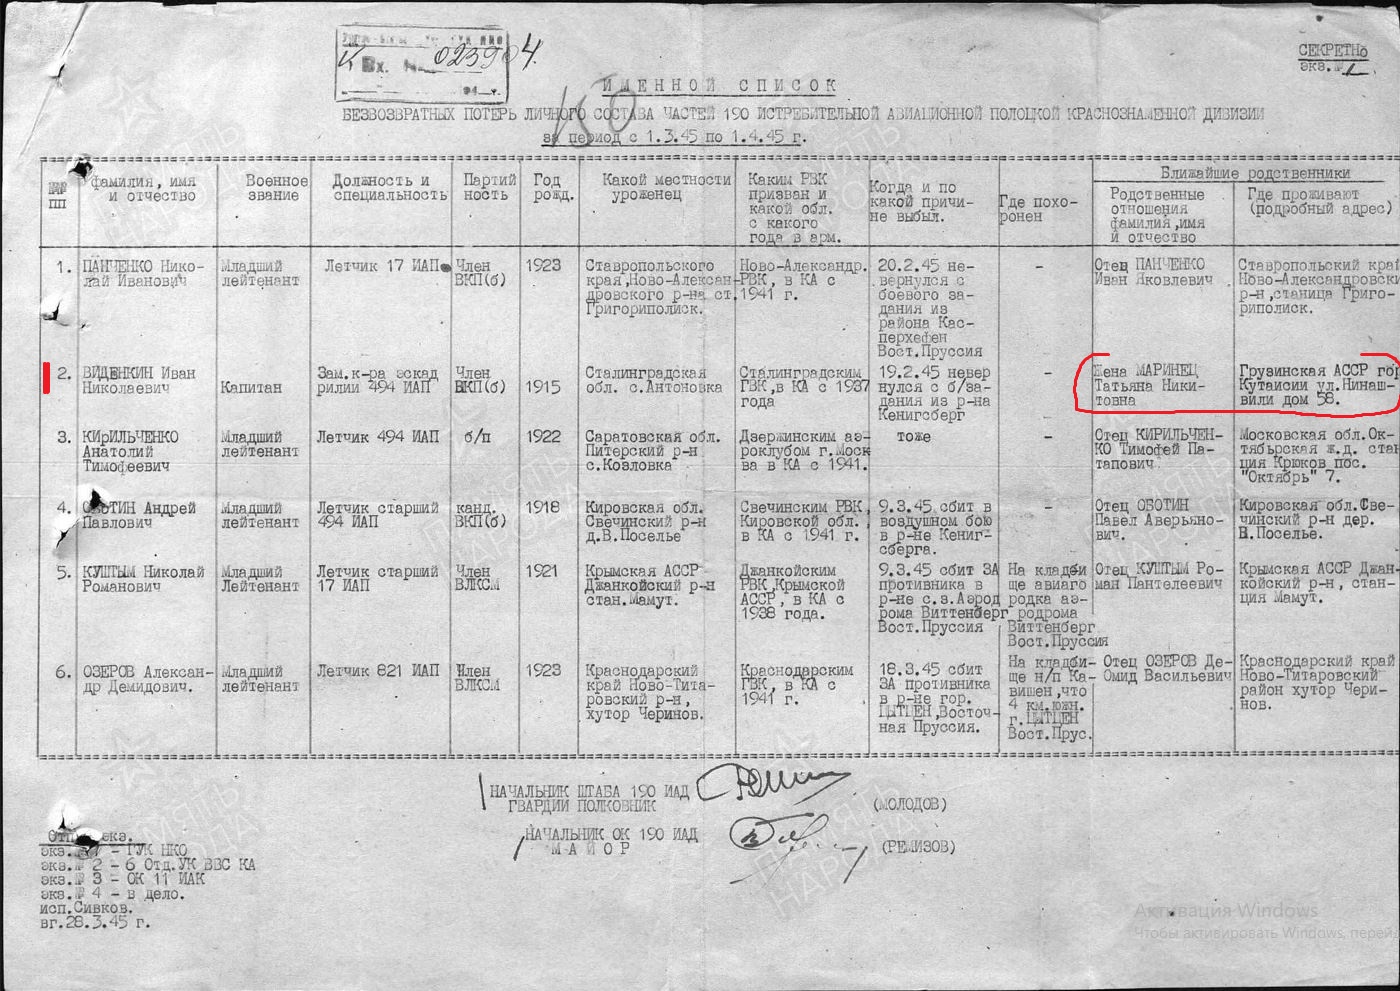 СЕКРЕТНО
экз.№ 1
Вх. №
023904.
ИМЕННОЙ СПИСОК
БЕЗВОЗВРАТНЫХ ПОТЕРЬ ЛИЧНОГО СОСТАВА ЧАСТЕЙ 190 ИСТРЕБИТЕЛЬНОЙ АВИАЦИОННОЙ ПОЛОЦКОЙ КРАСНОЗНАМЕННОЙ ДИВИЗИИ
за период с 1.3.45 по 1.4.45 г.
ПП
фамилия, имя
и отчество
Военное
звание
Должность и
специальность
Партий
ность
Год
рожд.
Какой местности
уроженец
Каким РВК
призван и
какой обл.
с какого
года в арм.
Когда и по
какой причи-
не выбыл.
Где похо-
ронен
Ближайшие родственники
Родственные
отношения
фамилия,имя
и отчество
Где проживают
(подробный адрес)
1.
ПАНЧЕНКО Нико-
лай Иванович
Младший
лейтенант
Летчик 17 ИАП
Член
ВКП(б)
1923
Ставропольского
края,Ново-Алексан-
дровского р-на ст.
Григориполиск.
Ново-Александр.
РВК, в КА с
1941 г.
20.2.45 не-
вернулся с
боевого за-
дания из
района Кас-
перхефен
Вост.Пруссия
-
Отец ПАНЧЕНКО
Иван Яковлевич
Ставропольский край
Ново-Александровски
р-н,станица Григо-
риполиск.
2.
ВИДЕНКИН Иван
Николаевич
Капитан
Зам.к-ра эскад
рилии 494 ИАП
Член
ВКП(б)
1915
Сталинградская
обл. с.Антоновка
Сталинградским
ГВК,в КА с 1937
года
19.2.45 невер
нулся с б/за-
дания из р-на
Кенигсберг
-
Жена МАРИНЕЦ
Татьяна Ники-
товна
Грузинская АССР гор
Кутаисии ул.Нинаш-
вили дом 58.
3.
КИРИЛЬЧЕНКО
Анатолий
Тимофеевич
Младший
лейтенант
Летчик 494 ИАП
б/п
1922
Саратовская обл.
Питерский р-н
с.Козловка
Дзержинским аэ-
роклубом г.Моск
ва в КА с 1941.
тоже
-
Отец КИРИЛЬЧЕН-
КО Тимофей Па-
тапович.
Московская обл.Ок-
тябрьская ж.д. стан
ция Крюков пос.
"Октябрь" 7.
4.
ОВОТИН Андрей
Павлович
Младший
лейтенант
Летчик старший
494 ИАП
канд.
ВКП(б)
1918
Кировская обл.
Свечинский р-н
д.В.Поселье
Свечинским РВК
Кировской обл.
в КА с 1941 г.
9.3.45 сбит в
воздушном бою
в р-не Кениг-
сберга.
-
Отец ОВОТИН
Павел Аверьяно-
вич.
Кировская обл.Све-
чинский р-н дер.
В.Поселье.
5.
КУШТЫМ Николай
Романович
Младший
Лейтенант
Летчик старший
17 ИАП
Член
ВЛКСМ
1921
Крымская АССР
Джанкойский р-н
стан.Мамут.
Джанкойским
РВК,Крымской
АССР, в КА с
1938 года.
9.3.45 сбит ЗА
противника в
р-не с.з.Аэрод
рома Виттенберг
Вост.Пруссия
На кладби
ще авиаго
родка аэ-
родрома
Виттенберг
Вост.Пруссия
Отец КУШТЫМ Ро-
ман Пантелеевич
Крымская АССР Джан-
койский р-н, стан-
ция Мамут.
6.
ОЗЕРОВ Алексан-
др Демидович.
Младший
лейтенант
Летчик 821 ИАП
Член
ВЛКСМ
1923
Краснодарский
край Ново-Тита-
ровский р-н,
хутор Черинов.
Краснодарским
ГВК, в КА с
1941 г.
18.3.45 сбит
ЗА противника
в р-не гор.
ЦЫТЦЕН,Восточ-
ная Пруссия.
На кладби-
ще н/п Ка-
вишен,что
4 км.южн.
г.ЦЫТЦЕН
Вост.Прус.
Отец ОЗЕРОВ Де-
Омид Васильевич
Краснодарский край
Ново-Титаровский
район хутор Чери-
нов.
НАЧАЛЬНИК ШТАБА 190 ИАД
ГВАРДИИ ПОЛКОВНИК
(МОЛОДОВ)
НАЧАЛЬНИК ОК 190 ИАД
МАЙОР
(РЕМИЗОВ)
экз.
экз.№ 1 - ГУК НКО
экз.№ 2 - 6 Отд.УК ВВС КА
экз.№ 3 - ОК 11 ИАК
экз.№ 4 - в дело.
исп.Сивков.
вг.28.3.45 г.
ПАМЯТЬ НАРОДА
Активация Windows
Чтобы активировать Windows, перей